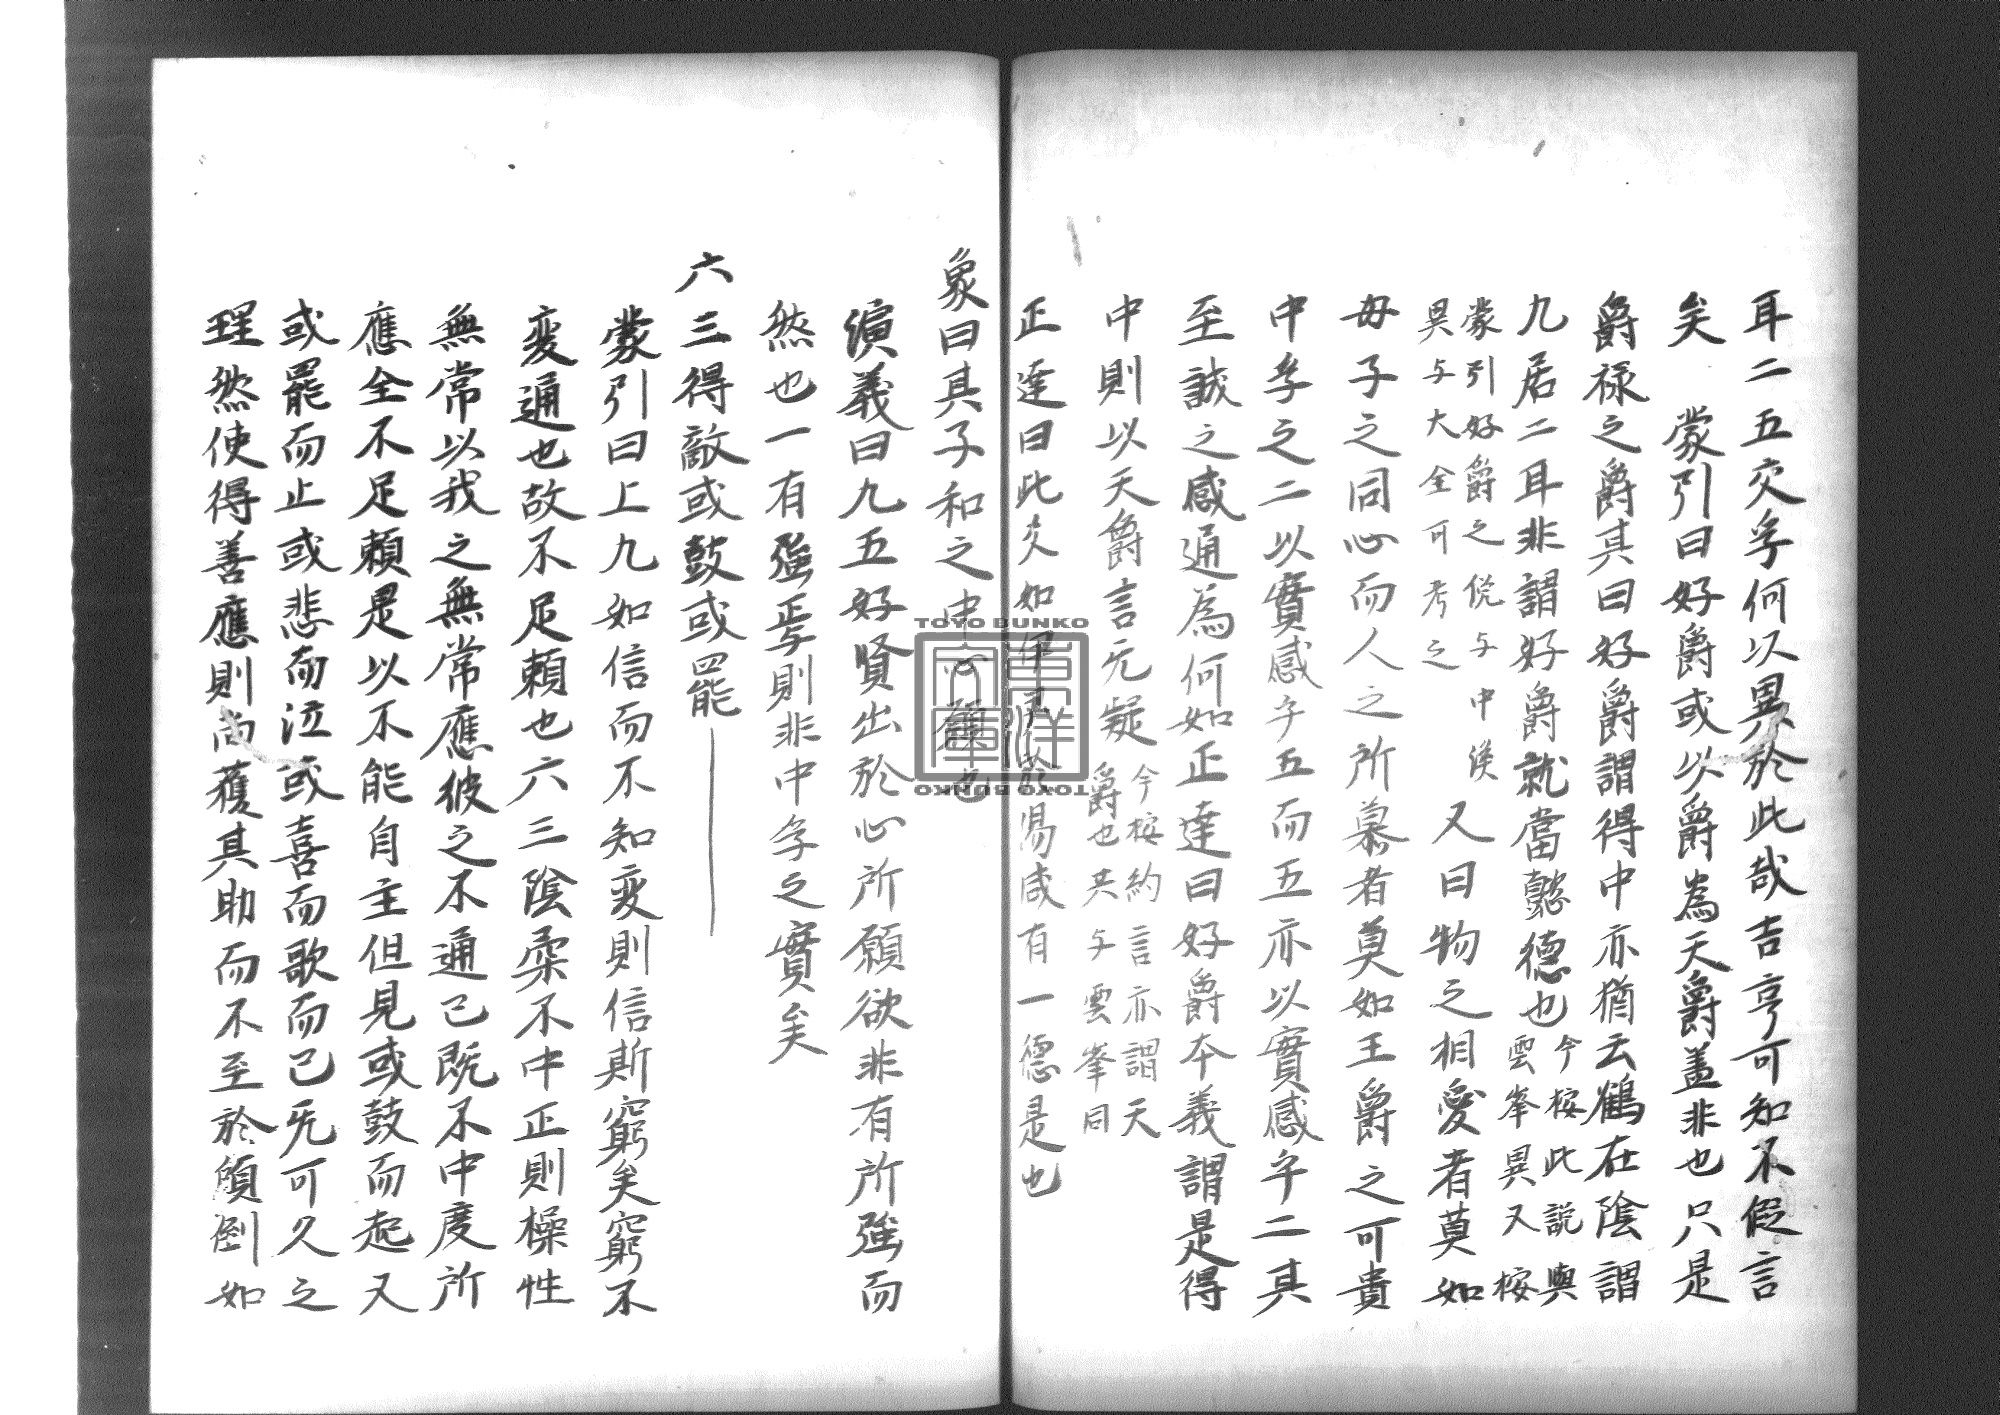 耳二五交孚何以異於此哉吉亨可知不假言
矣　蒙引曰好爵或以爵為天爵盖非也只是
爵祿之爵其曰好爵謂得中亦猶云鶴在陰謂
九居二耳非謂好爵就當懿德也今桉此説與
雲峯異又桉
蒙引好爵之侻与中溪
異与大全可考之
又曰物之相愛者莫如
母子之同心而人之所慕者莫如王爵之可貴
中孚之二以實感孚五而五亦以實感孚二其
至誠之感通為何如正達曰好爵本義謂是得
中則以天爵言无疑今桉約言亦謂天
爵也共与雲峯同
正達曰此爻如伊尹於湯咸有一德是也
象曰其子和之中心願也
演義曰九五好賢出於心所願欲非有所強而
然也一有強焉則非中孚之實矣
六三得敵或鼓或罷
蒙引曰上九如信而不知変則信斯窮矣窮不
変通也故不足賴也六三陰柔不中正則橾性
無常以我之無常應彼之不通己既不中度所
應全不足賴是以不能自主但見或鼓而起又
或罷而止或悲而泣或喜而歌而已旡可久之
理然使得善應則尚獲其助而不至於傾倒如